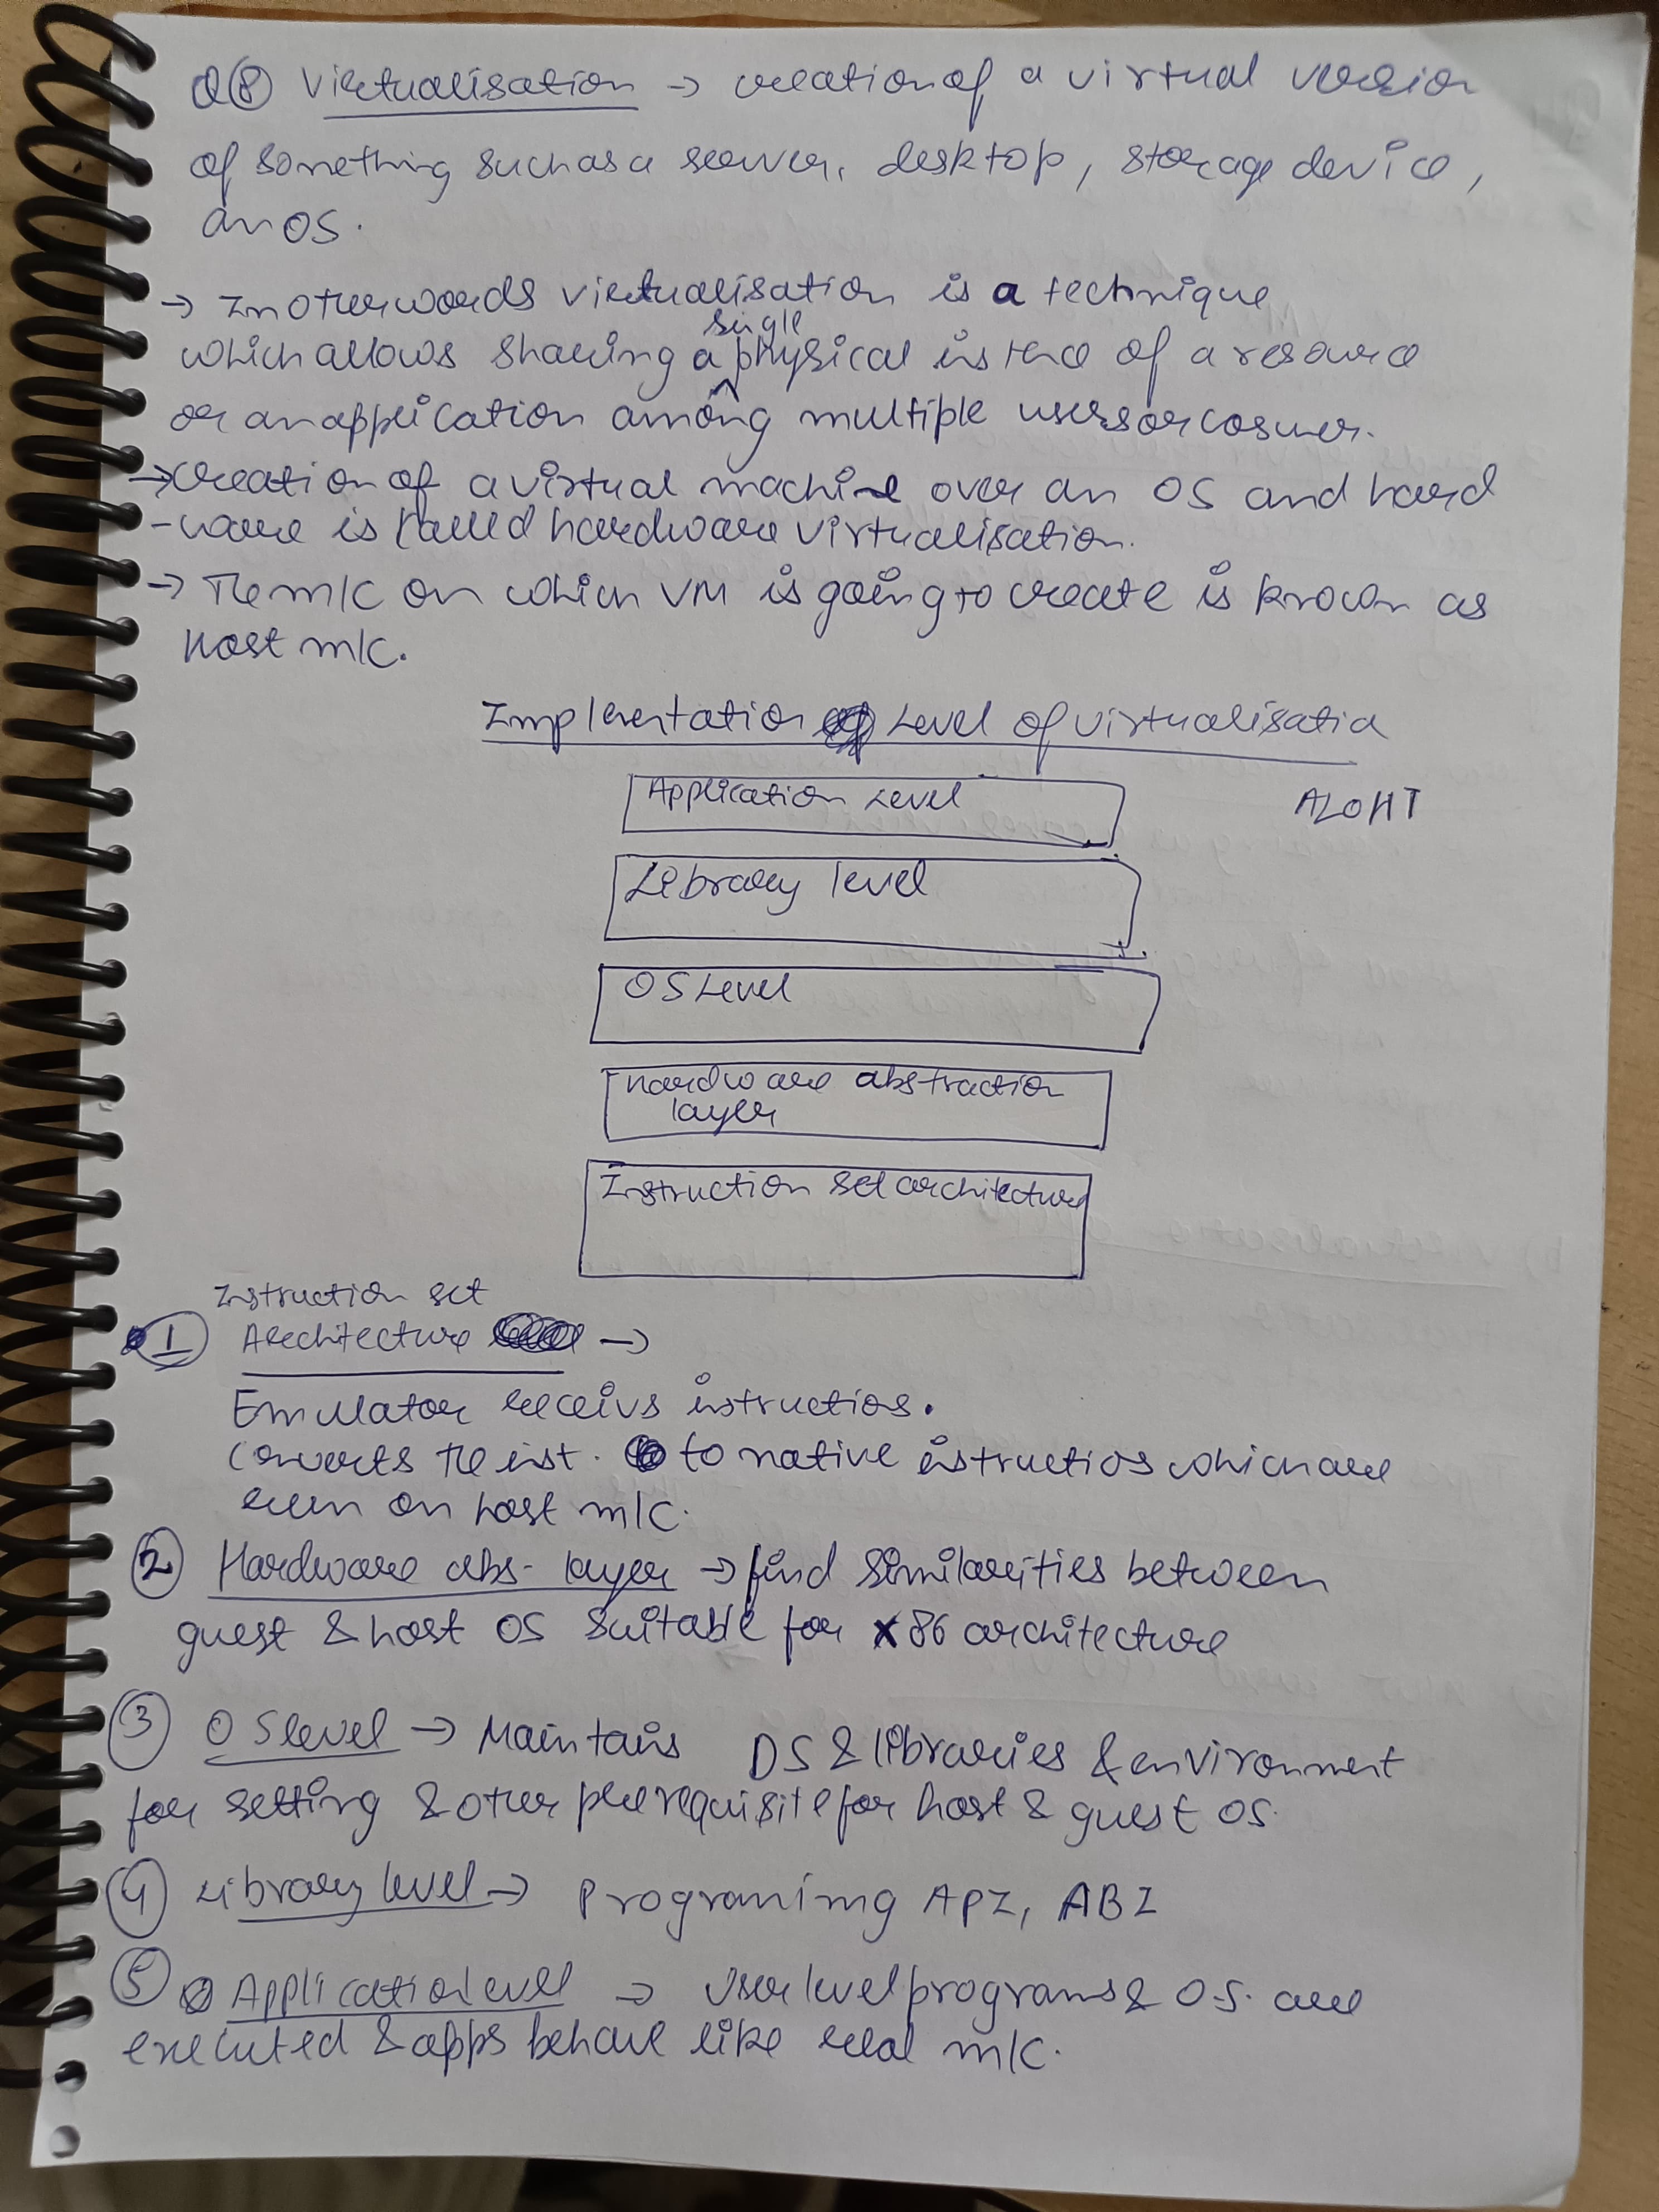 Q8 Virtualisation → creation of a virtual version
of something such as a server, desktop, storage device,
an OS.
→ In other words virtualisation is a technique
single
which allows sharing a physical instnce of a resource
or an application among multiple users or
→ creation of a virtual machine over an OS and hard
-ware is called hardware virtualisation.
→ The m/c on which VM is going to create is known as
host m/c.
Implementation Level of virtualisatio
Application Level
ALOHI
Library level
OS Level
Hardware abstraction
layer
Instruction set architecture
Instruction set
1 Architecture →
Emulator receivs instructios.
Converts the inst. to native instructios which are
run on host m/c.
2 Hardware abs- layer → find similarities between
guest & host OS suitable for x86 architecture
3 OS level → Maintais DS & libraries & environment
for setting & other prerequisite for host & guest OS.
4 Library level → Programimg API, ABI
5 Applicatio level → User level programs & O.S. are
executed & apps behave like real m/c.